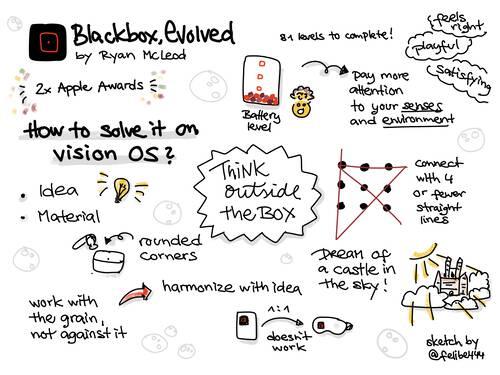 Blackbox, evolved
by Ryan McLeod
2x Apple Awards
81 levels to complete!
feels
right
playful
satisfying
Battery
level
pay more
attention
to your senses
and environment
How to solve it on
vision OS?
• Idea
• Material
rounded
corners
Think
outside
the BOX
connect
with 4
or fewer
straight
lines
work with
the grain,
not against it
harmonize with idea
1:1
doesn't
work
Dream of
a castle in
the sky!
sketch by
@felibe444